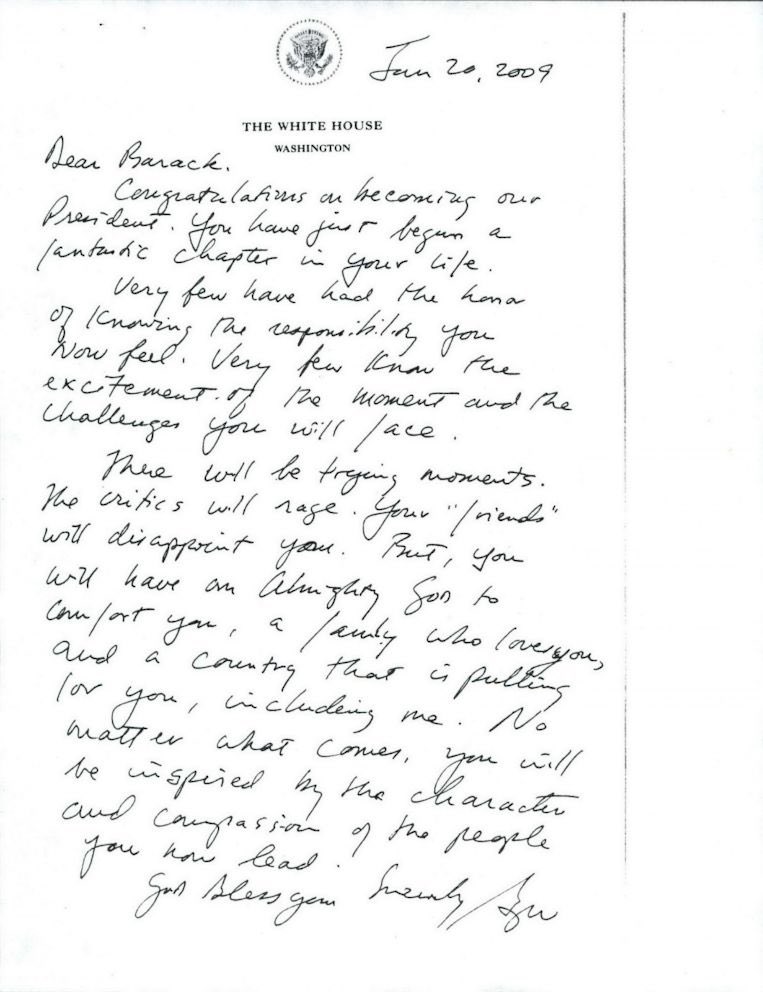 Jan 20, 2009
THE WHITE HOUSE
WASHINGTON
Dear Barack.
Congratulations on becoming our
President. You have just begun a
fantastic chapter in your life.
Very few have had the honor
of knowing the responsibility you
now feel. Very few know the
excitement of the moment and the
challenges you will face.
There will be trying moments.
The critics will rage. Your "friends"
will disappoint you. But, you
will have an Almighty God to
comfort you, a family who loves you,
and a country that is pulling
for you, including me. No
matter what comes, you will
be inspired by the character
and compassion of the people
you now lead.
God Bless you
Sincerely, GW